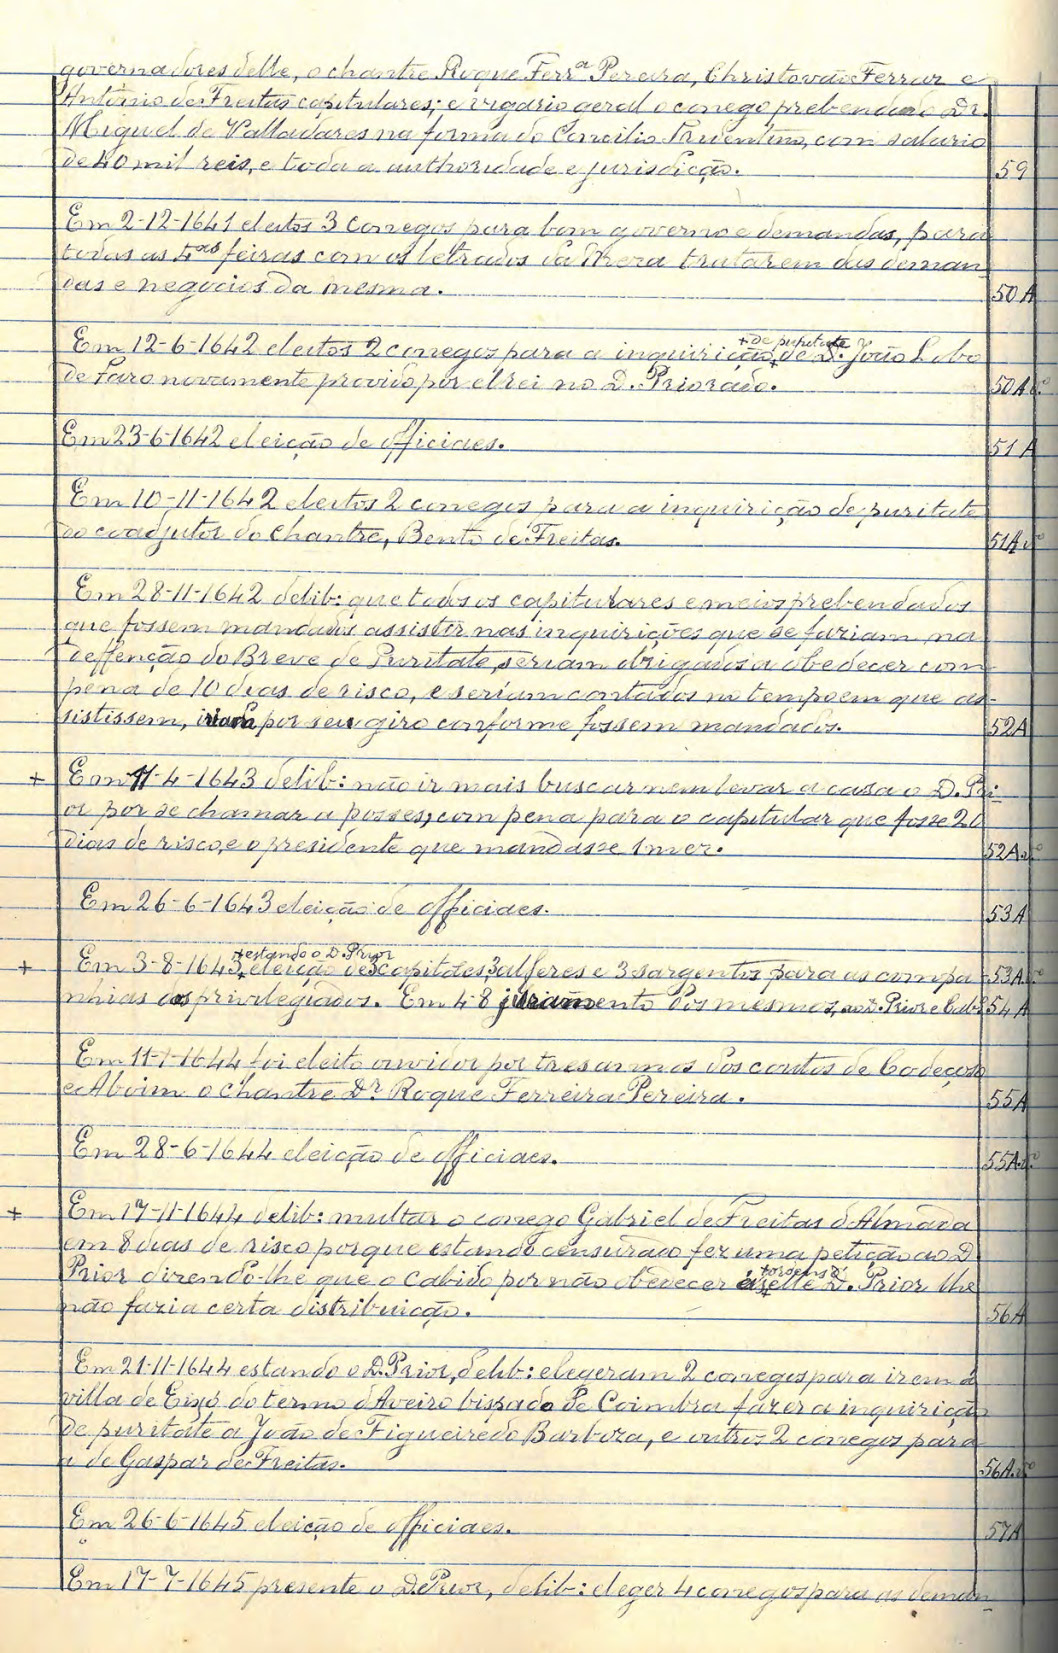 governadores delle, o chantre Roque Ferr.ª Pereira, Christovão Ferrar e
António de Freitas capitulares; e vigario geral o conego prebendado Dr.
Miguel de Valladares na forma do Concilio Tridentino, com salario
de 40 mil reis, e toda a authoridade e jurisdicção. 59
Em 2-12-1641 eleitos 3 conegos para bom governo e demandas, para
todas as 4.as feiras com os letrados da Meza tratarem das deman
das e negocios da mesma. 50 A
+ de puritate
Em 12-6-1642 eleitos 2 conegos para a inquirição + de D. João Lobo
de Faro novamente provido por el rei no D. Priorado. 50A v.º
Em 23-6-1642 eleição de officiaes. 51 A
Em 10-11-1642 eleitos 2 conegos para a inquirição de puritate
do coadjutor do chantre, Bento de Freitas. 51A v.º
Em 28-11-1642 delib: que todos os capitulares e meios prebendados
que fossem mandados assistir nas inquirições que se faziam na
deffenção do Breve de Puritate, seriam obrigados a obedecer com
pena de 10 dias de risco, e seriam contados no tempo em que as-
sistissem, iriam por seu giro conforme fossem mandados. 52A
+ Em 11-4-1643 delib: não ir mais buscar nem levar a casa o D. Pri-
or por se chamar a posses, com pena para o capitular que fosse 20
dias de risco, e o presidente que mandasse 1 mez. 52A v.º
Em 26-6-1643 eleição de officiaes. 53A
+ estando o D. Prior
+ Em 3-8-1643, + eleição de 3 capitães, 3 alferes e 3 sargentos para as compa 53A v.º
nhias dos privilegiados. Em 4-8 juramento dos mesmos, ao D. Prior e Cab.º 54 A
Em 11-1-1644 foi eleito ouvidor por tres annos dos coutos de Codeçoso
e Aboim o chantre Dr. Roque Ferreira Pereira. 55A
Em 28-6-1644 eleição de officiaes. 55A v.º
+ Em 17-11-1644 delib: multar o conego Gabriel de Freitas d'Almada
em 8 dias de risco porque estando censurado fez uma petição ao D.
Prior dizendo-lhe que o Cabido por não obedecer ás ordens d'elle D. Prior lhe
não fazia certa distribuição. 56A
Em 21-11-1644 estando o D. Prior, delib: elegeram 2 conegos para irem á
villa de Eixo do termo d'Aveiro bispado de Coimbra fazer a inquirição
de puritate a João de Figueiredo Barboza, e outros 2 conegos para
a de Gaspar de Freitas. 56A v.º
Em 26-6-1645 eleição de officiaes. 57A
Em 17-7-1645 presente o D. Prior, delib: eleger 4 conegos para as deman-